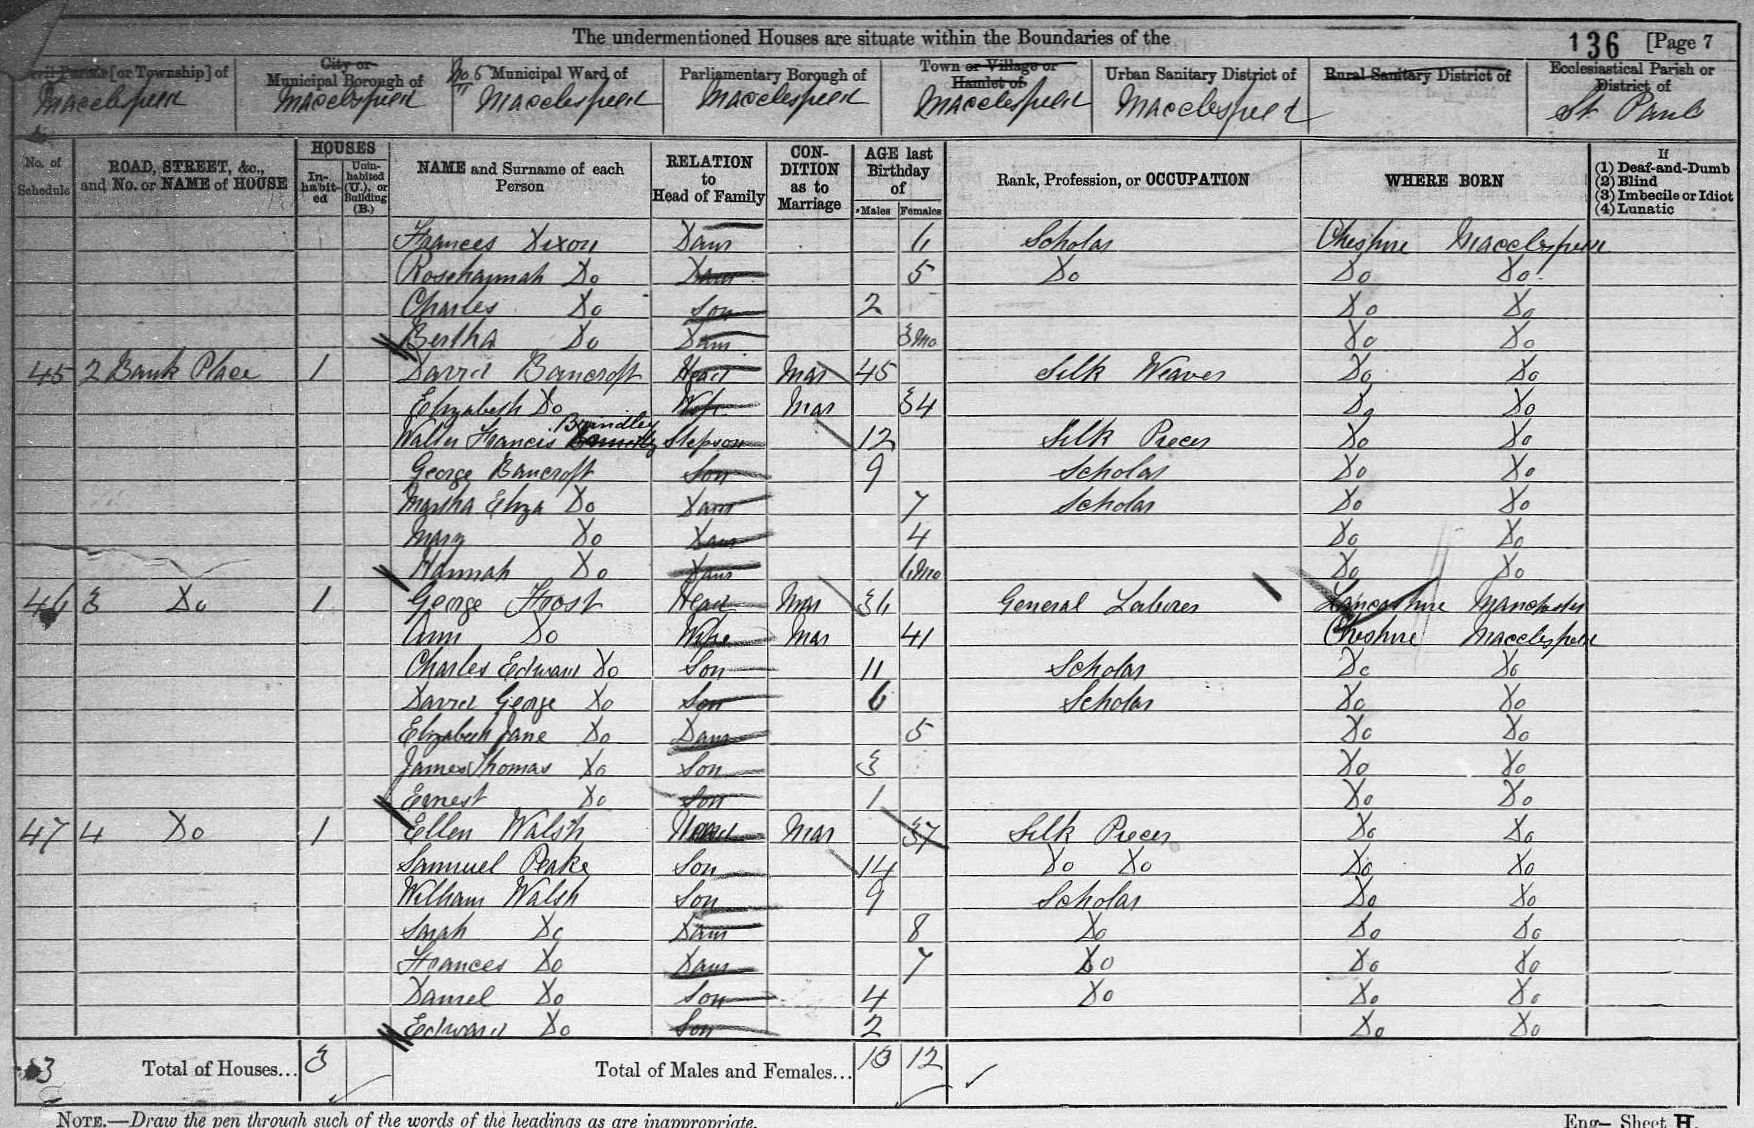 The undermentioned Houses are situate within the Boundaries of the
136 [Page 7
Civil Parish [or Township] of
City or Municipal Borough of
No. 5 Municipal Ward of
Parliamentary Borough of
Town or Village or Hamlet of
Urban Sanitary District of
Rural Sanitary District of
Ecclesiastical Parish or District of
Macclesfield Macclesfield Macclesfield Macclesfield Macclesfield Macclesfield St Pauls
No. of Schedule
ROAD, STREET, &c., and No. or NAME of HOUSE
HOUSES
In-habit-ed
Unin-habited (U.), or Building (B.)
NAME and Surname of each Person
RELATION to Head of Family
CON-DITION as to Marriage
AGE last Birthday of
Males Females
Rank, Profession, or OCCUPATION
WHERE BORN
If
(1) Deaf-and-Dumb
(2) Blind
(3) Imbecile or Idiot
(4) Lunatic
Frances Dixon Daur 6 Scholar Cheshire Macclesfield
Rosehannah Do Daur 5 Do Do Do
Charles Do Son 2 Do Do
Bertha Do Daur 3mo Do Do
45 2 Bank Place 1 David Bancroft Head Mar 45 Silk Weaver Do Do
Elizabeth Do Wife Mar 34 Do Do
Walter Francis Brindley Stepson 12 Silk Piecer Do Do
George Bancroft Son 9 Scholar Do Do
Martha Eliza Do Daur 7 Scholar Do Do
Mary Do Daur 4 Do Do
Hannah Do Daur 6mo Do Do
46 3 Do 1 George Frost Head Mar 36 General Laborer Lancashire Manchester
Ann Do Wife Mar 41 Cheshire Macclesfield
Charles Edward Do Son 11 Scholar Do Do
David George Do Son 6 Scholar Do Do
Elizabeth Jane Do Daur 5 Do Do
James Thomas Do Son 3 Do Do
Ernest Do Son 1 Do Do
47 4 Do 1 Ellen Walsh Head Mar 37 Silk Piecer Do Do
Samuel Peake Son 14 Do Do Do Do
William Walsh Son 9 Scholar Do Do
Sarah Do Daur 8 Do Do Do
Frances Do Daur 7 Do Do Do
Daniel Do Son 4 Do Do Do
Edward Do Son 2 Do Do
3 Total of Houses... 3 Total of Males and Females... 13 12
NOTE.—Draw the pen through such of the words of the headings as are inappropriate.
Eng— Sheet H.